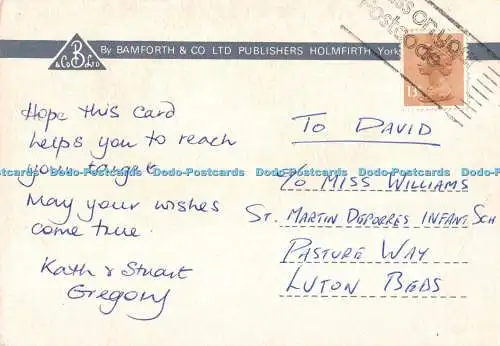 Pass on your
Postcode
By BAMFORTH & CO LTD PUBLISHERS HOLMFIRTH York
B
& Co Ltd
13
Hope this card
helps you to reach
your target
May your wishes
come true.
Kath & Stuart
Gregory
TO DAVID
C/O MISS WILLIAMS
ST. MARTIN DEPORRES INFANT. SCH
PASTURE WAY
LUTON BEDS
Dodo-Postcards Dodo-Postcards Dodo-Postcards Dodo-Postcards Dodo-Postcards Dodo-Postcards